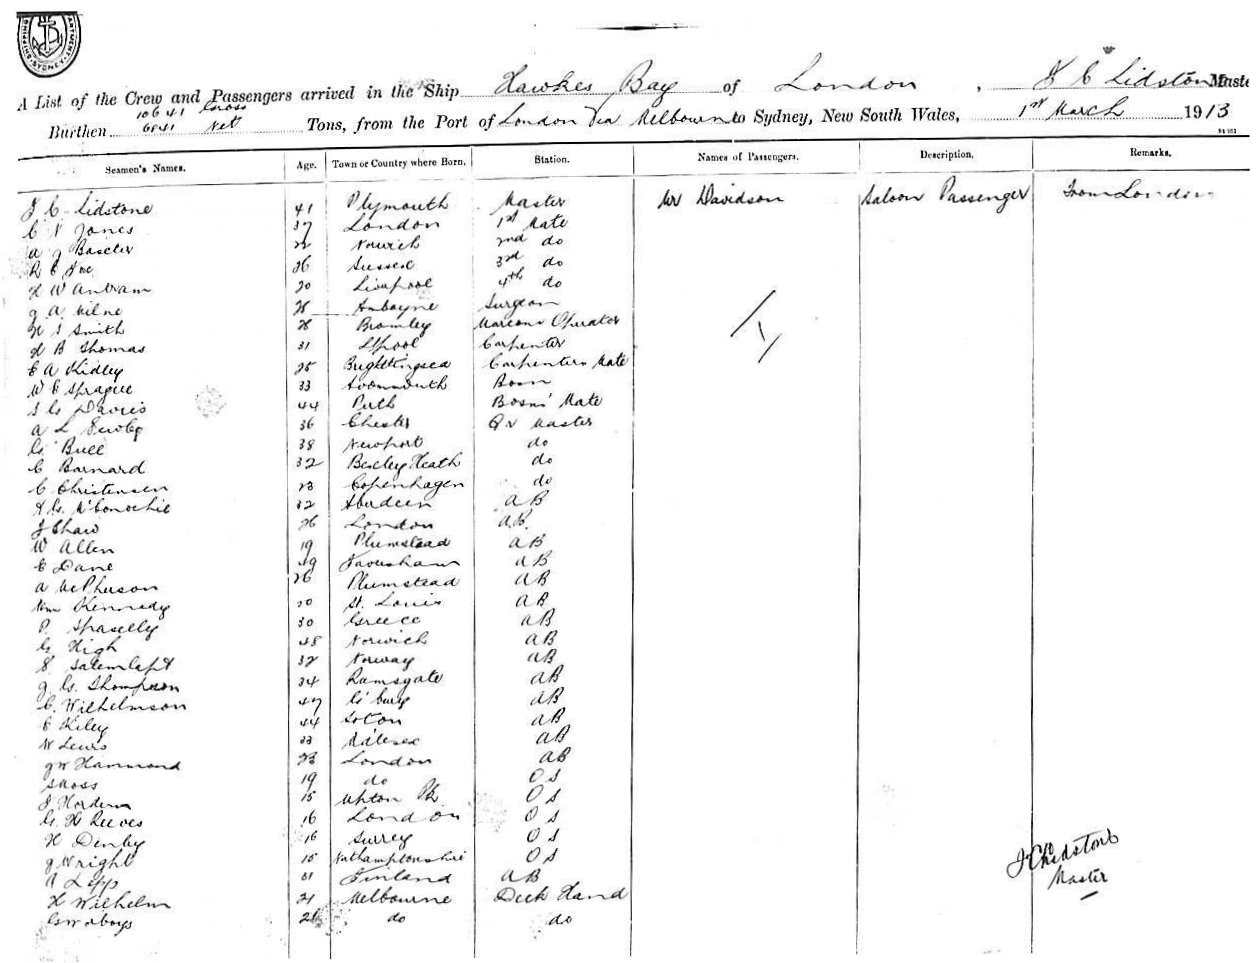 A List of the Crew and Passengers arrived in the Ship Hawkes Bay of London, J C Lidstone Master
Burthen 10641 Gross 6841 Net Tons, from the Port of London Via Melbourne to Sydney, New South Wales, 1st March 1913
Seamen's Names. Age. Town or Country where Born. Station. Names of Passengers. Description. Remarks.
J C Lidstone 41 Plymouth Master Mr Davidson Saloon Passenger From London
C N Jones 37 London 1st Mate
A J Baxter 22 Norwich 2nd do
R C 26 Sussex 3rd do
H W Antram 20 Liverpool 4th do
J A Milne 28 Surgeon
H S Smith 28 Bromley Marconi Operator
H B Thomas 31 L'pool Carpenter
C A Kidley 25 Brightlingsea Carpenters Mate
W C Sprague 33 Avonmouth Bosn
S G Davies 44 Perth Bosns' Mate
A L 36 Chester Qr Master
G Bull 38 Newport do
C Barnard 32 Bexley Heath do
C Christensen 23 Copenhagen do
A G McConochie 32 Aberdeen AB
J Shaw 26 London AB
W Allen 19 Plumstead AB
C Dane 49 Faversham AB
A McPherson 26 Plumstead AB
Wm Kennedy 20 St. Louis AB
P. 30 Greece AB
G High 48 Norwich AB
S 32 Norway AB
J G. Thompson 34 Ramsgate AB
C. Wilhelmson 47 G'burg AB
C Kiley 44 Soton AB
W Lewis 33 AB
J W Hammond 23 London AB
S Moss 19 do OS
J Hordern 15 Upton Pk OS
G. H Reeves 16 London OS
H Denby 16 Surrey OS
J Wright 15 Northamptonshire OS
A Lepp 31 Finland AB
H Wilhelm 21 Melbourne Deck Hand
21 do do
J C Lidstone
Master